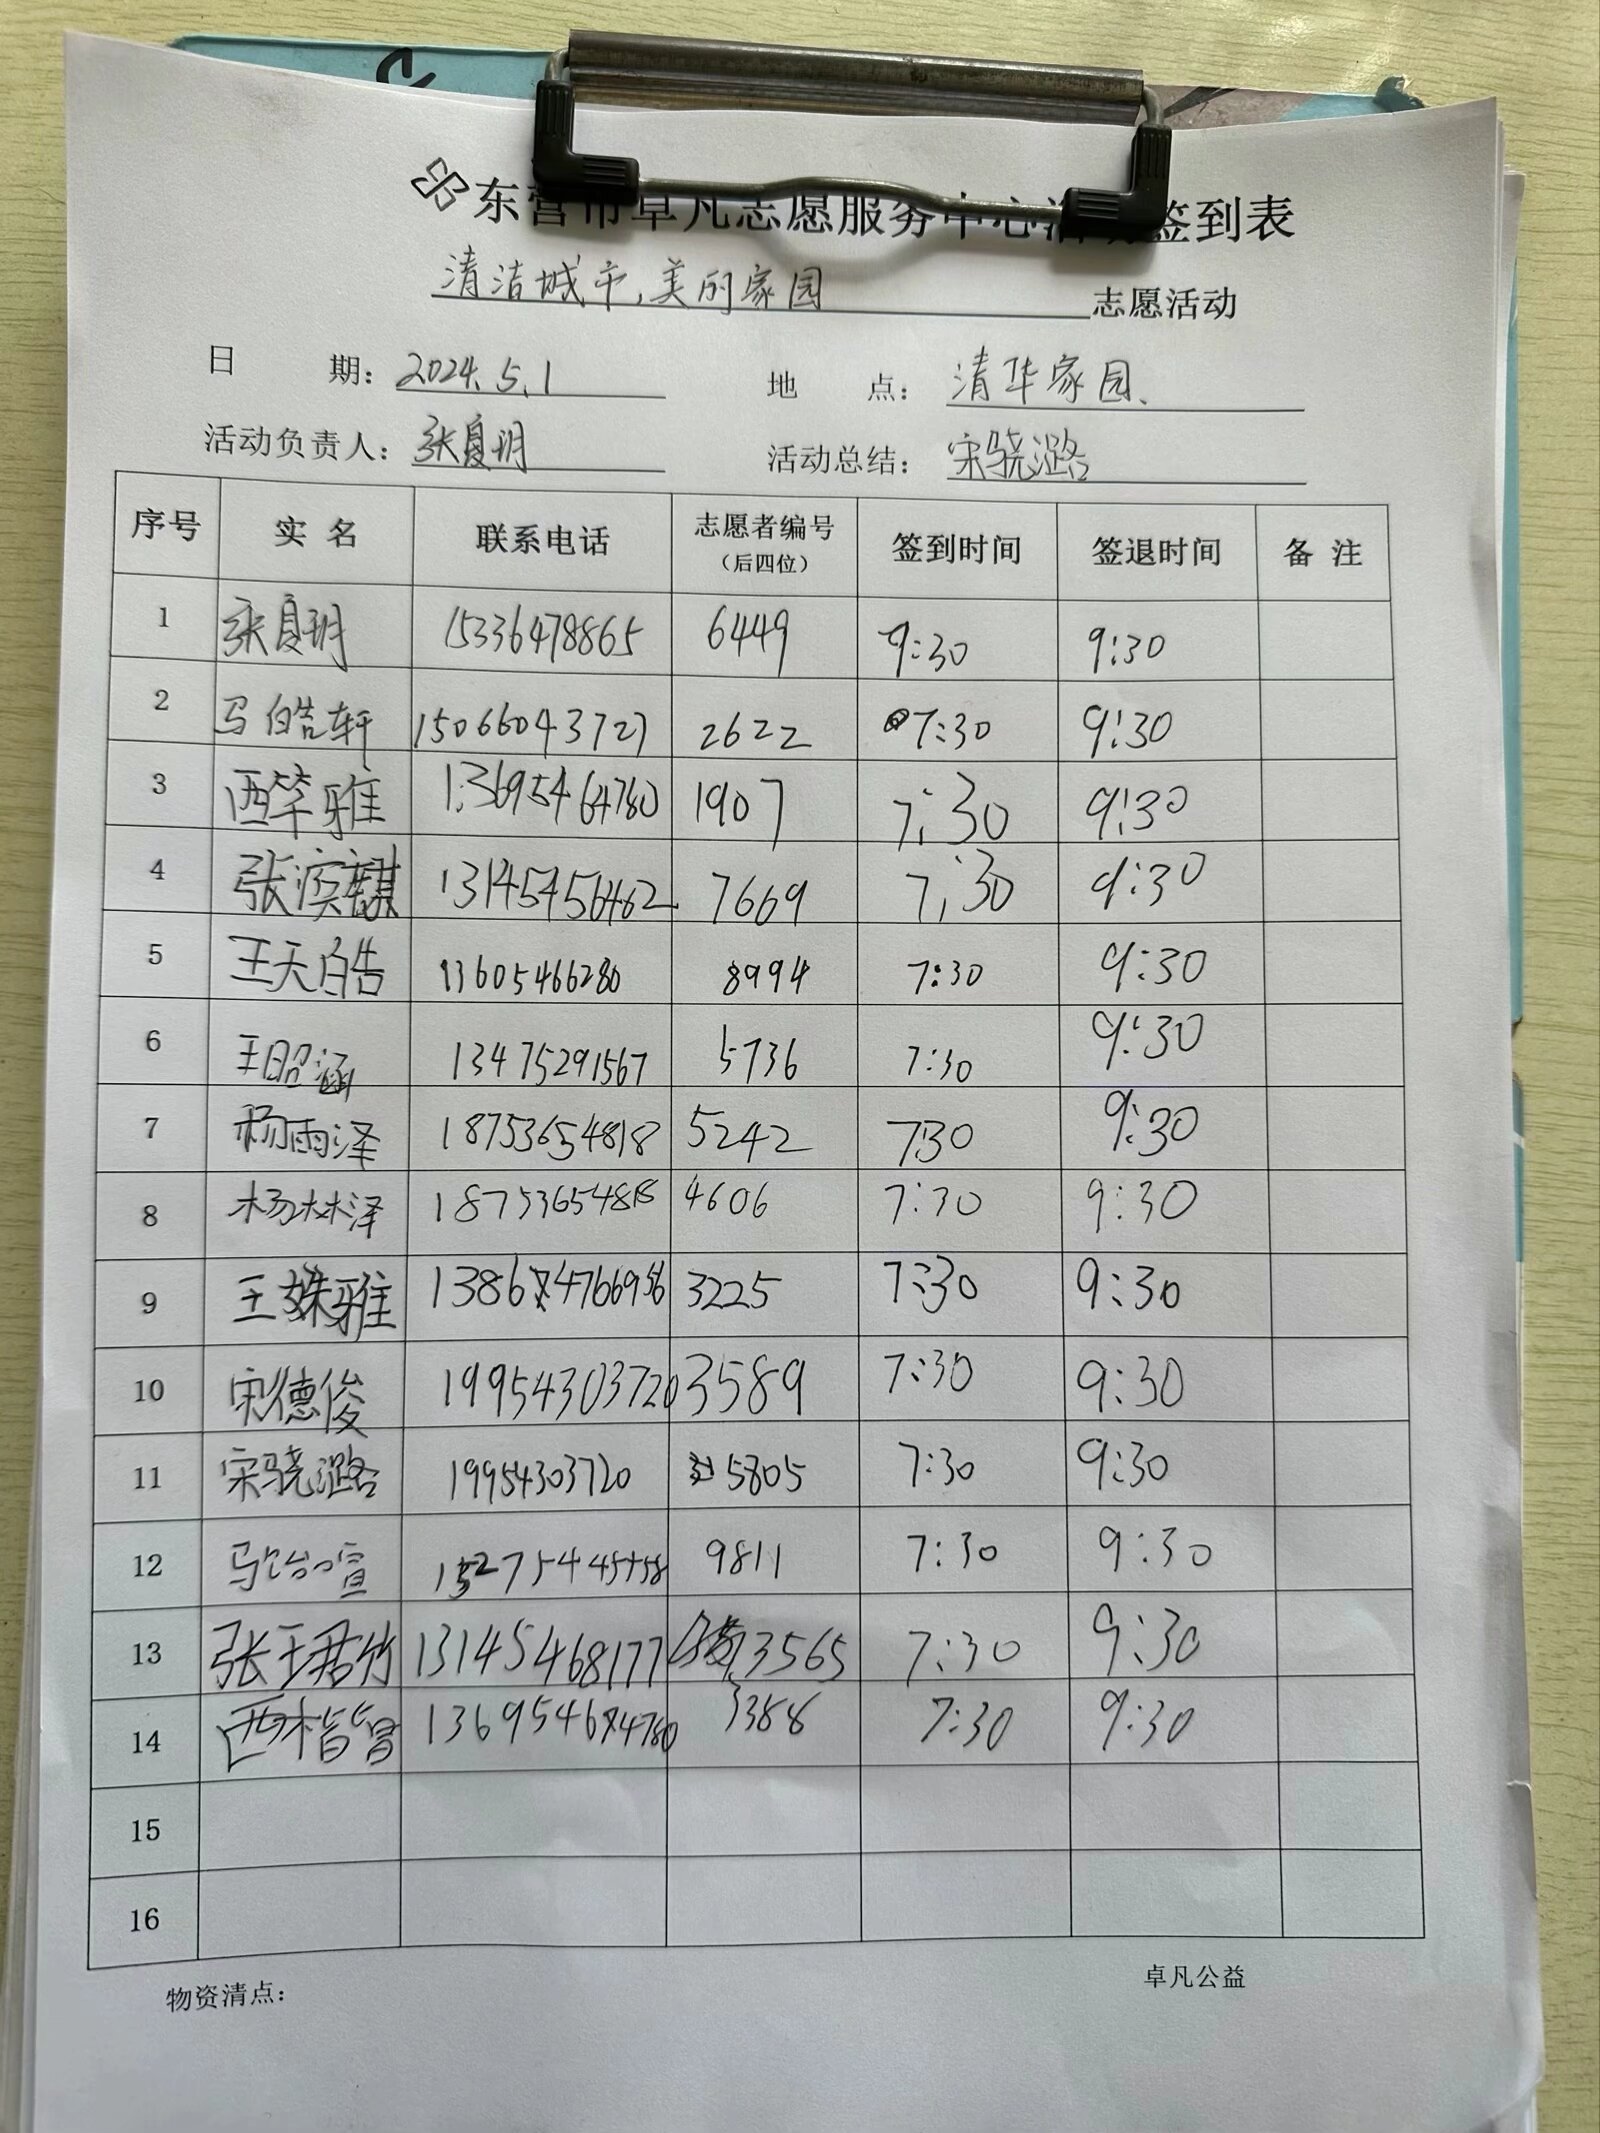 东营市卓凡志愿服务中心活动签到表
清洁城市,美丽家园 志愿活动
日 期: 2024.5.1 地 点: 清华家园、
活动负责人: 张夏玥 活动总结: 宋骁潞
序号 实 名 联系电话 志愿者编号 (后四位) 签到时间 签退时间 备 注
1 张夏玥 15336478865 6449 9:30 9:30
2 马皓轩 15066043727 2622 7:30 9:30
3 西笨雅 13695464780 1907 7:30 9:30
4 张滨麒 13145456462 7669 7:30 9:30
5 王天皓 13605466280 8994 7:30 9:30
6 王昭涵 13475291567 5736 7:30 9:30
7 杨雨泽 18753654818 5242 7:30 9:30
8 杨林泽 18753654818 4606 7:30 9:30
9 王姝雅 3225 7:30 9:30
10 宋德俊 19954303720 3589 7:30 9:30
11 宋骁潞 19954303720 5805 7:30 9:30
12 马饴喧 9811 7:30 9:30
13 张王君竹 13145468177 3565 7:30 9:30
14 西楷 13695464780 3388 7:30 9:30
15
16
物资清点: 卓凡公益